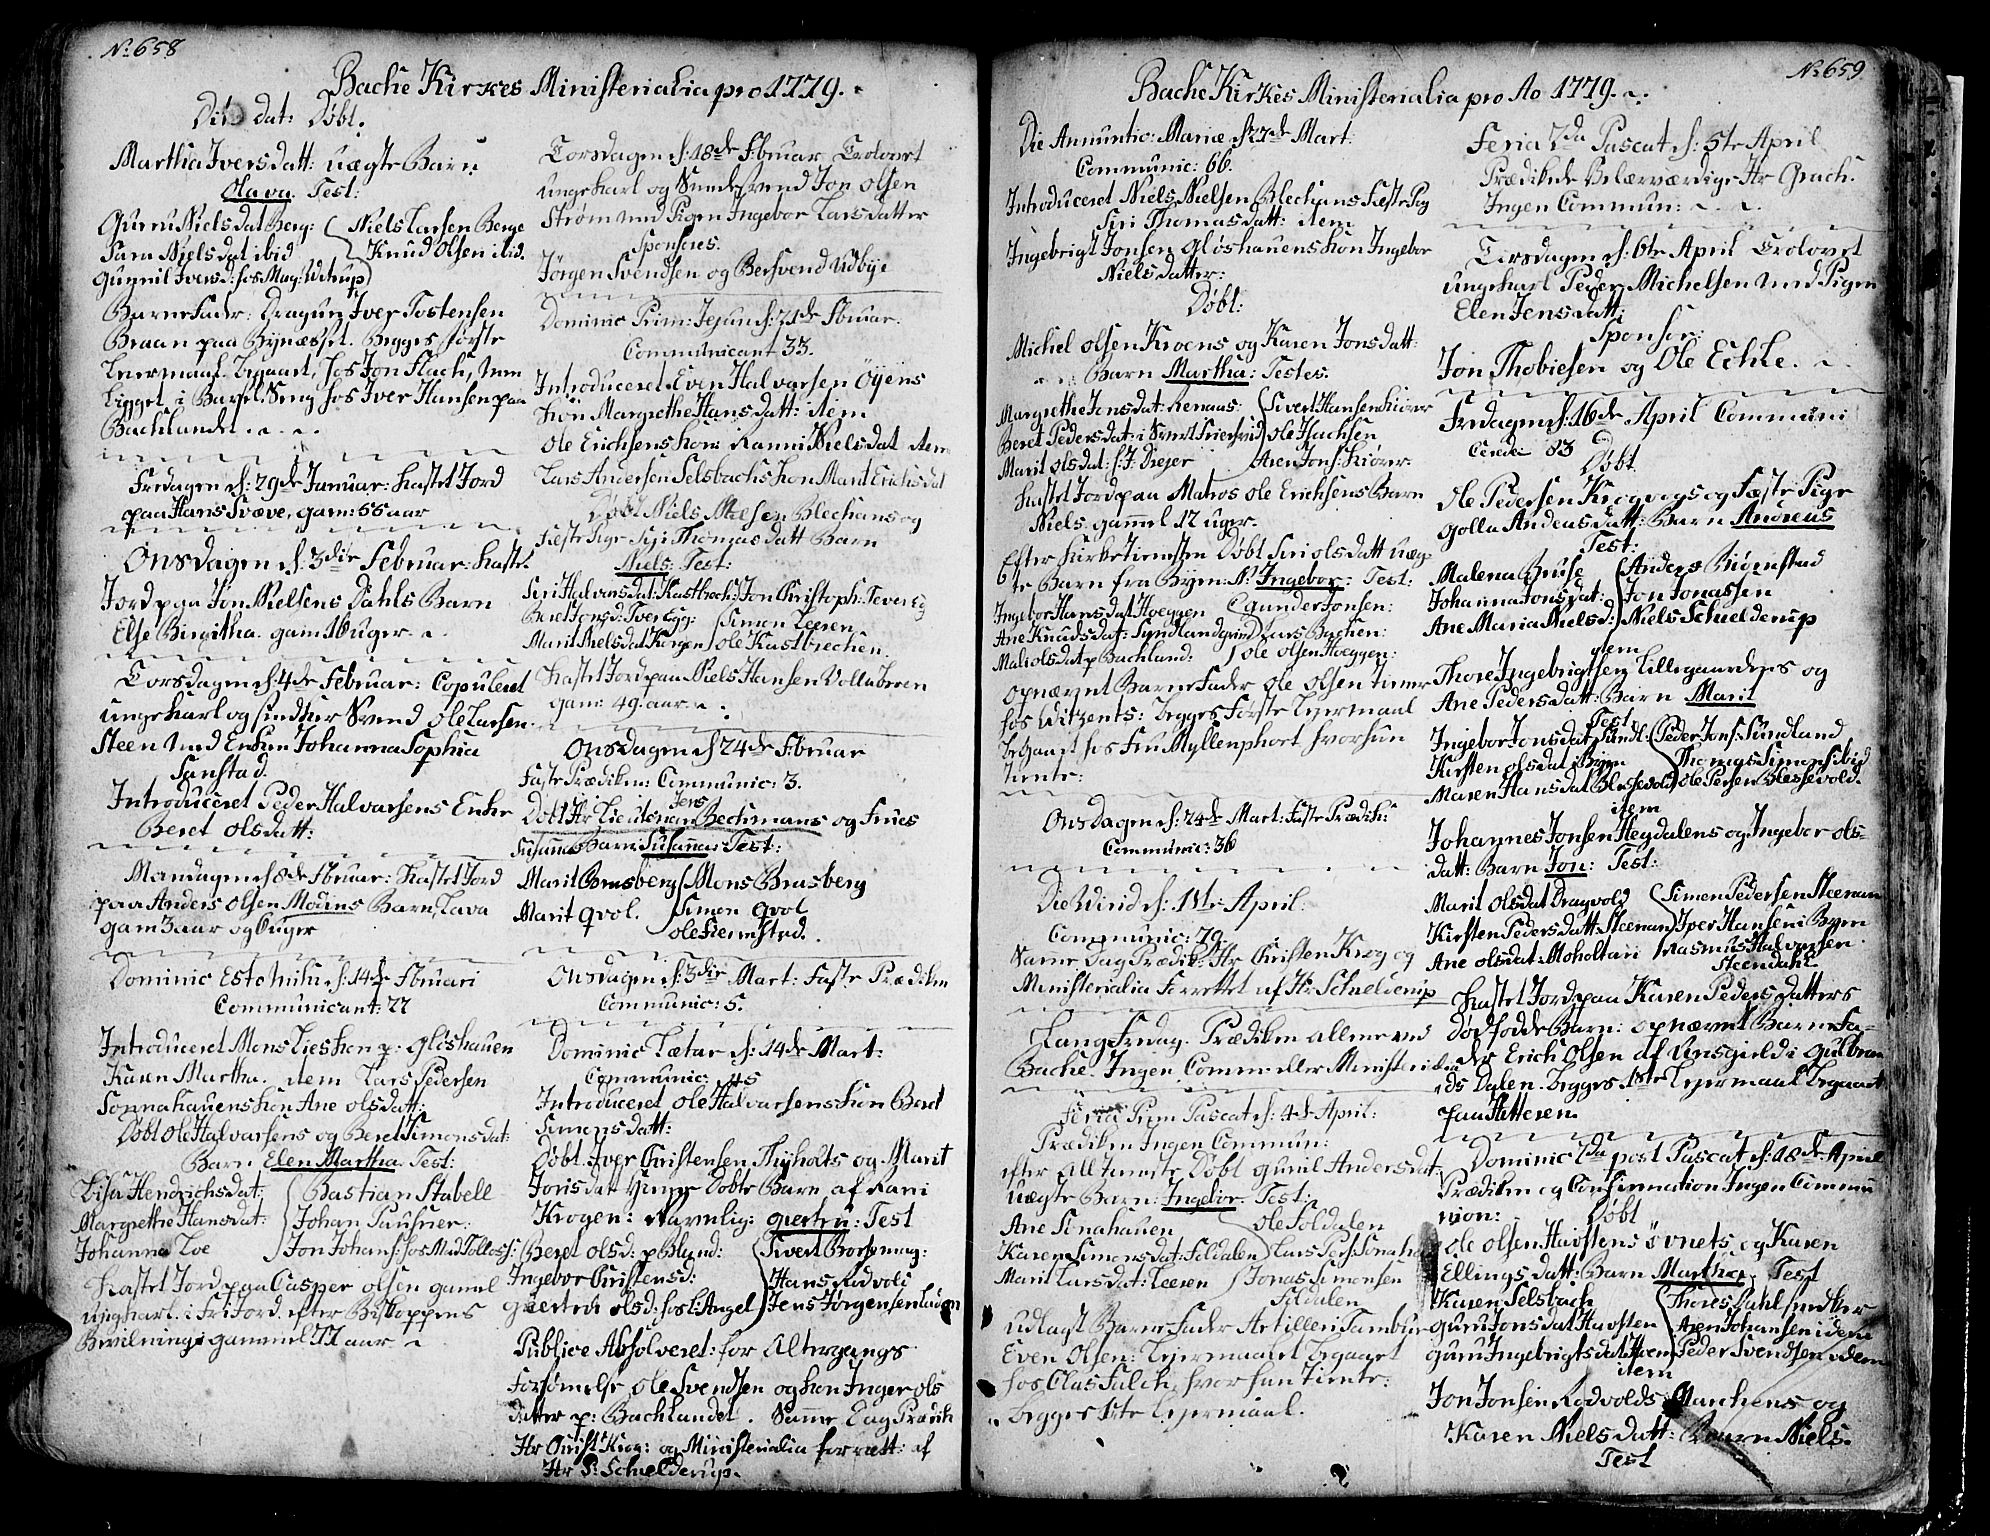 No: 658
Bache Kirkes Ministerialia pro 1779.
Dito dat: Døbt.
Martha Iversdatt: uægte Barn
Olava. Test:
Guru Nielsdat Berg: Niels Larsen Berge
Sara Nielsdat ibid Knud Olsen ibid.
Gunnil Iversd: hos Mag: Udtrup
Barnefader: Dragun Iver Tostensen
Braan paa Bynæsset. Begges første
Leiermaal. begaaet, hos Jon Flach, men
ligget i Barsel Seng hos Iver Hansen paa
Bachlandet.
Fredagen d: 29de Januar: kastet Jord
paa Hans Svæve, gam: 55 aar
Onsdagen d: 3die Februar: kastet
Jord paa Jon Nielsens Dahls Barn
Else Birgitha. gam: 16 uger.
Torsdagen d: 4de Februar: Copuleret
ungekarl og Svend Ole Larsen
Steen med Enken Johanna Sophia
Sanstad.
Introduceret Peder Halvarsens Enke
Beret Olsdatt:
Mandagen d: 8de Februar: kastet Jord
paa Anders Olsen Moens Barn, Lava
gam 3 aar og 6 uger
Dominic Estomihi d: 14de Februari
Communicant: 22
Introduceret Mons Lies kon p: Gløshauen
Karen Martha. item Lars Pedersen
Sonnahauens kon Ane Olsdatt:
Døbt Ole Halvarsens og Beret Simonsdat:
Barn Elen Martha. Test:
Lisa Hendrichsdat: Bastian Stabell
Margrethe Hansdat: Johan
Johanna Loe Jon Johans: hos Mad Collos:
Kastet Jord paa Casper Olsen gamel
ungkarl. i Fri Jord efter Bistoppens
Bevilning: gammel 77 aar
Torsdagen d: 18de Februar Trolovet
ungekarl og Svend Jon Olsen
Strøm med Pigen Ingebor Larsdatter
Sponsores.
Jørgen Svendsen og Bersvend Udbye
Dominic Prim: Jejun d: 21de Februar.
Communicant 33.
Introduceret Even Halvarsen Øyens
kon Margrethe Hansdatt: item
Ole Erichsens kon: Ranni Nielsdat item
Lars Andersen Selsbachs kon Marit Erichsdat
Døbt Niels Nielsen Blechans og
Fæste Pige Siri Thomasdatt Barn
Niels. Test:
Siri Halvarsdat: Kastbrech: Jon Christoph:
Beret Jonsd: Tveregg: Simon Leeren
Marit Nielsdat Krogen Ole Kastbrechen.
Kastet Jord paa Niels Hansen Volluberen
gam: 49. aar.
Onsdagen d 24de Februar
Faste Prædiken: Communic: 3.
Døbt Hr Lieutenant Jens Bechmans og Frues
Susanna Barn: Susanna: Test:
Marit Bromsberg Mons Brusberg
Marit Qvol. Simon Qvol
Ole Hermstad.
Onsdagen d: 3die Mart: Faste Prædiken
Communic: 5.
Dominic Lætar d: 14de Mart:
Communic: 45
Introduceret Ole Halvarsens kon Beret
Simonsdatt:
Døbt Iver Christensen Thyholts og Marit
Jonsdat Barn af Rani
Krogen: Navnlig: Giertru: Test
Beret Olsd: p Bland: Sivert Brochsmag:
Ingebor Christensd: Hans Ridvold
Giertru Olsd: hos l: Angel Jens Jørgensen Laden
Publice Absolveret: for Altergangs
Forsømelse Ole Svendsen og kon Inger Ols
datter p: Bachlandet. Samme Dag Prædik
Hr Christ: Krog: og Ministerialia forrett: af
Hr P: Schielderup.
No: 659
Bache Kirkes Ministerialia pro Ao 1779.
Die Annuntic: Mariæ d: 22de Mart.
Communic: 66.
Introduceret Niels Nielsen Blechans Fæste Pig
Siri Thomasdatt: item
Ingebrigt Jonsen Gløshauens kon Ingebor
Nielsdatter:
Døbt:
Michel Olsen Kroens og Karen Jonsdatt:
Barn Martha: Testes.
Margrethe Jonsdat: Renaas: Sivert Hansen Kiører
Beret Pedersdat: i Ole Hachsen
Marit Olsdat: Aren Jons: Kiører.
Kastet Jord paa Matros Ole Erichsens Barn
Niels. gammel 12 uger.
Efter Kirketienesten Døbt Siri Olsdatt uæg-
te Barn fra Byen: N: Ingebor: Test:
Ingebor Hansdat Hoeggen Gunder Jonsen:
Ane Knudsdat: Lars Bachen:
Mali Olsdat p Bachland: Ole Olsen Hoeggen:
Opnævnt Barnefader Ole Olsen tiener
hos Witzents: begges Første Leyermaal
begaaet hos Fru Myllenphort hvor hun
tiente:
Onsdagen d: 24de Mart: Faste Prædik:
Communic: 36
Die Virid d: 1ste April:
Communic: 79.
Same Dag Prædik: Hr Christen Krog og
Ministerialia Forrettet af Hr Schielderup
Langfredag. Prædiken allene ved
Bache. Ingen Comm: eller Ministerialia
Feria Prim Pascat d: 4de April:
Prædiken Ingen Commun:
efter all tieneste Døbt Gunil Andersdat:
uægte Barn: Ingebor. Test:
Ane Sonahauen Ole Foldalen
Karen Simonsdat: Foldalen Lars Pers: Sonahau
Marit Larsdat: Leeren Jonas Simonsen
Foldalen
Udlagt Barnefader Artilleri Tambur
Even Olsen: Leyermaalet begaaet
hos Clas Falch, hvor hun tiente:
begges 1ste Leyermaal.
Feria 2da Pascat d: 5te April
Prædikede Velærværdige Hr Grach.
Ingen Commun:
Tirsdagen d: 6te April Trolovet
ungekarl Peder Michelsen med Pigen
Elen Jensdatt:
Sponsor:
Jon Thobiesen og Ole Echle.
Fredagen d: 16de April Communi
cerede 83
Døbt
Ole Pedersen Krogvogs og Fæste Pige
Golla Andeasdatt: Barn Andreas
Test:
Malena Bruse Anders Biørnstad
Johanna Jonsdat: Jon Jonassen
Ane Maria Nielsd: Niels Schielderup
item
Thore Ingebrigtsen Lillegaardens og
Ane Pedersdatt: Barn Marit
Test.
Ingebor Jonsdat Sundl: Peder Jons: Sundland
Kirsten Olsdat i Byen Thomas Simons ibid
Maren Hansdat Blessevold Ole Persen Blessevold.
item
Johannes Jonsen Heydalens og Ingebor Ols-
datt: Barn Jon: Test:
Marit Olsdat Dragvold Simen Pedersen Steenan
Kirsten Pedersdatt: Steenan Iver Hansen i Byen
Ane Olsdat: Moholtan Rasmus Halvorsen
Steendahl.
Kastet Jord paa Karen Pedersdatters
Dødfødde Barn: opnævnt Barnefa-
der Erich Olsen af i Gulbran
ds Dalen. begges 1ste Leyermaal begaaet
paa Hetteren.
Dominic 2da post Pascat d: 18de April
Prædiken og Confirmation Ingen Commu
nion: Døbt
Ole Olsen Havstens øvnets og Karen
Ellings datt: Barn Martha. Test
Karen Selsbach Thores Dahl smedker
Guru Jonsdat Havsten Aren Johansen idem
Guru Ingebrigtsdat Hoem Peder Svendsen idem
item
Jon Jonsen Rodvolds Marchens og
Karen Nielsdatt: Barn Niels.
Test